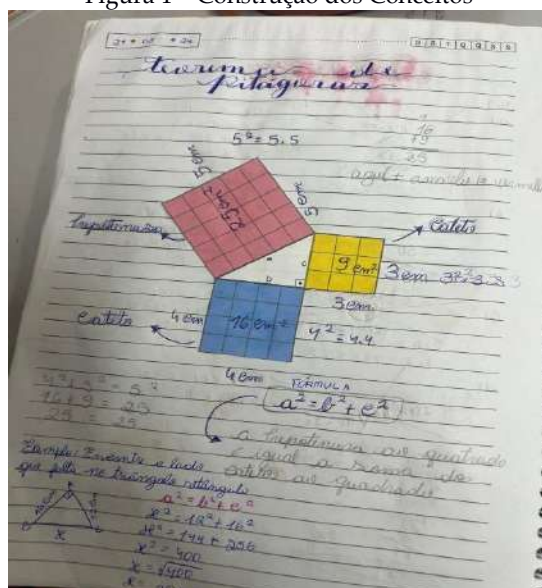 Figura 1 – Construção dos Conceitos
teorema de
pitágoras
16
+9
25
5² = 5.5
5cm
5cm
25cm²
azul + amarelo = vermelho
hipotenusa
cateto
9cm²
3cm
3² = 3.3
3cm
cateto
4cm
16cm²
4² = 4.4
4cm
4² + 3² = 5²
16 + 9 = 25
25 = 25
FÓRMULA
a² = b² + c²
a hipotenusa ao quadrado
é igual a soma dos
catetos ao quadrado
Exemplo: Encontre o lado
que falta no triângulo retângulo
a² = b² + c²
x² = 12² + 16²
x² = 144 + 256
x² = 400
x = √400
x =
x